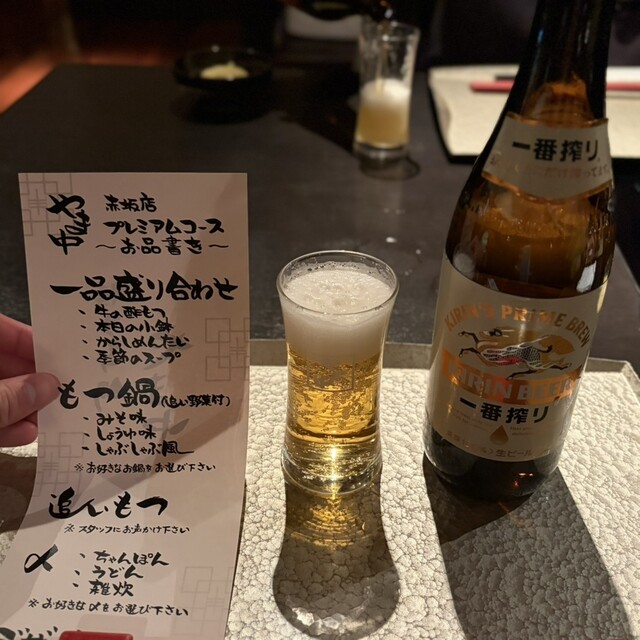 やま中
赤坂店
プレミアムコース
～お品書き～
一品盛り合わせ
・牛の酢もつ
・本日の小鉢
・からしめんたい
・季節のスープ
もつ鍋(追い野菜付)
・みそ味
・しょうゆ味
・しゃぶしゃぶ風
※お好きなお鍋をお選び下さい
追いもつ
※スタッフにお声かけ下さい
〆
・ちゃんぽん
・うどん
・雑炊
※お好きな〆をお選び下さい
一番搾り
KIRIN'S PRIME BREW
KIRIN BEER
一番搾り
生ビール